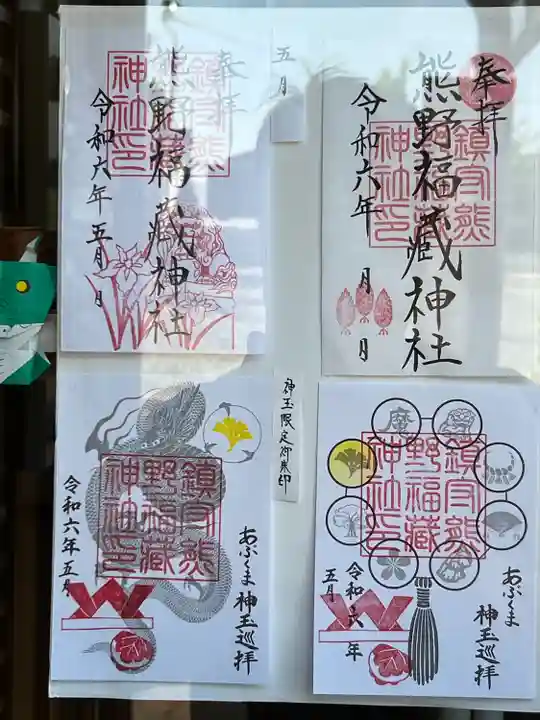 奉拝
熊野福藏神社
令和六年
月
日
鎮守熊
野福藏
神社印
五月
奉拝
熊野福藏神社
令和六年五月
日
鎮守熊
野福藏
神社印
神玉限定御朱印
摩
鎮守熊
野福藏
神社印
あぶくま
神玉巡拝
令和六年
五月
鎮守熊
野福藏
神社印
あぶくま
神玉巡拝
令和六年五月